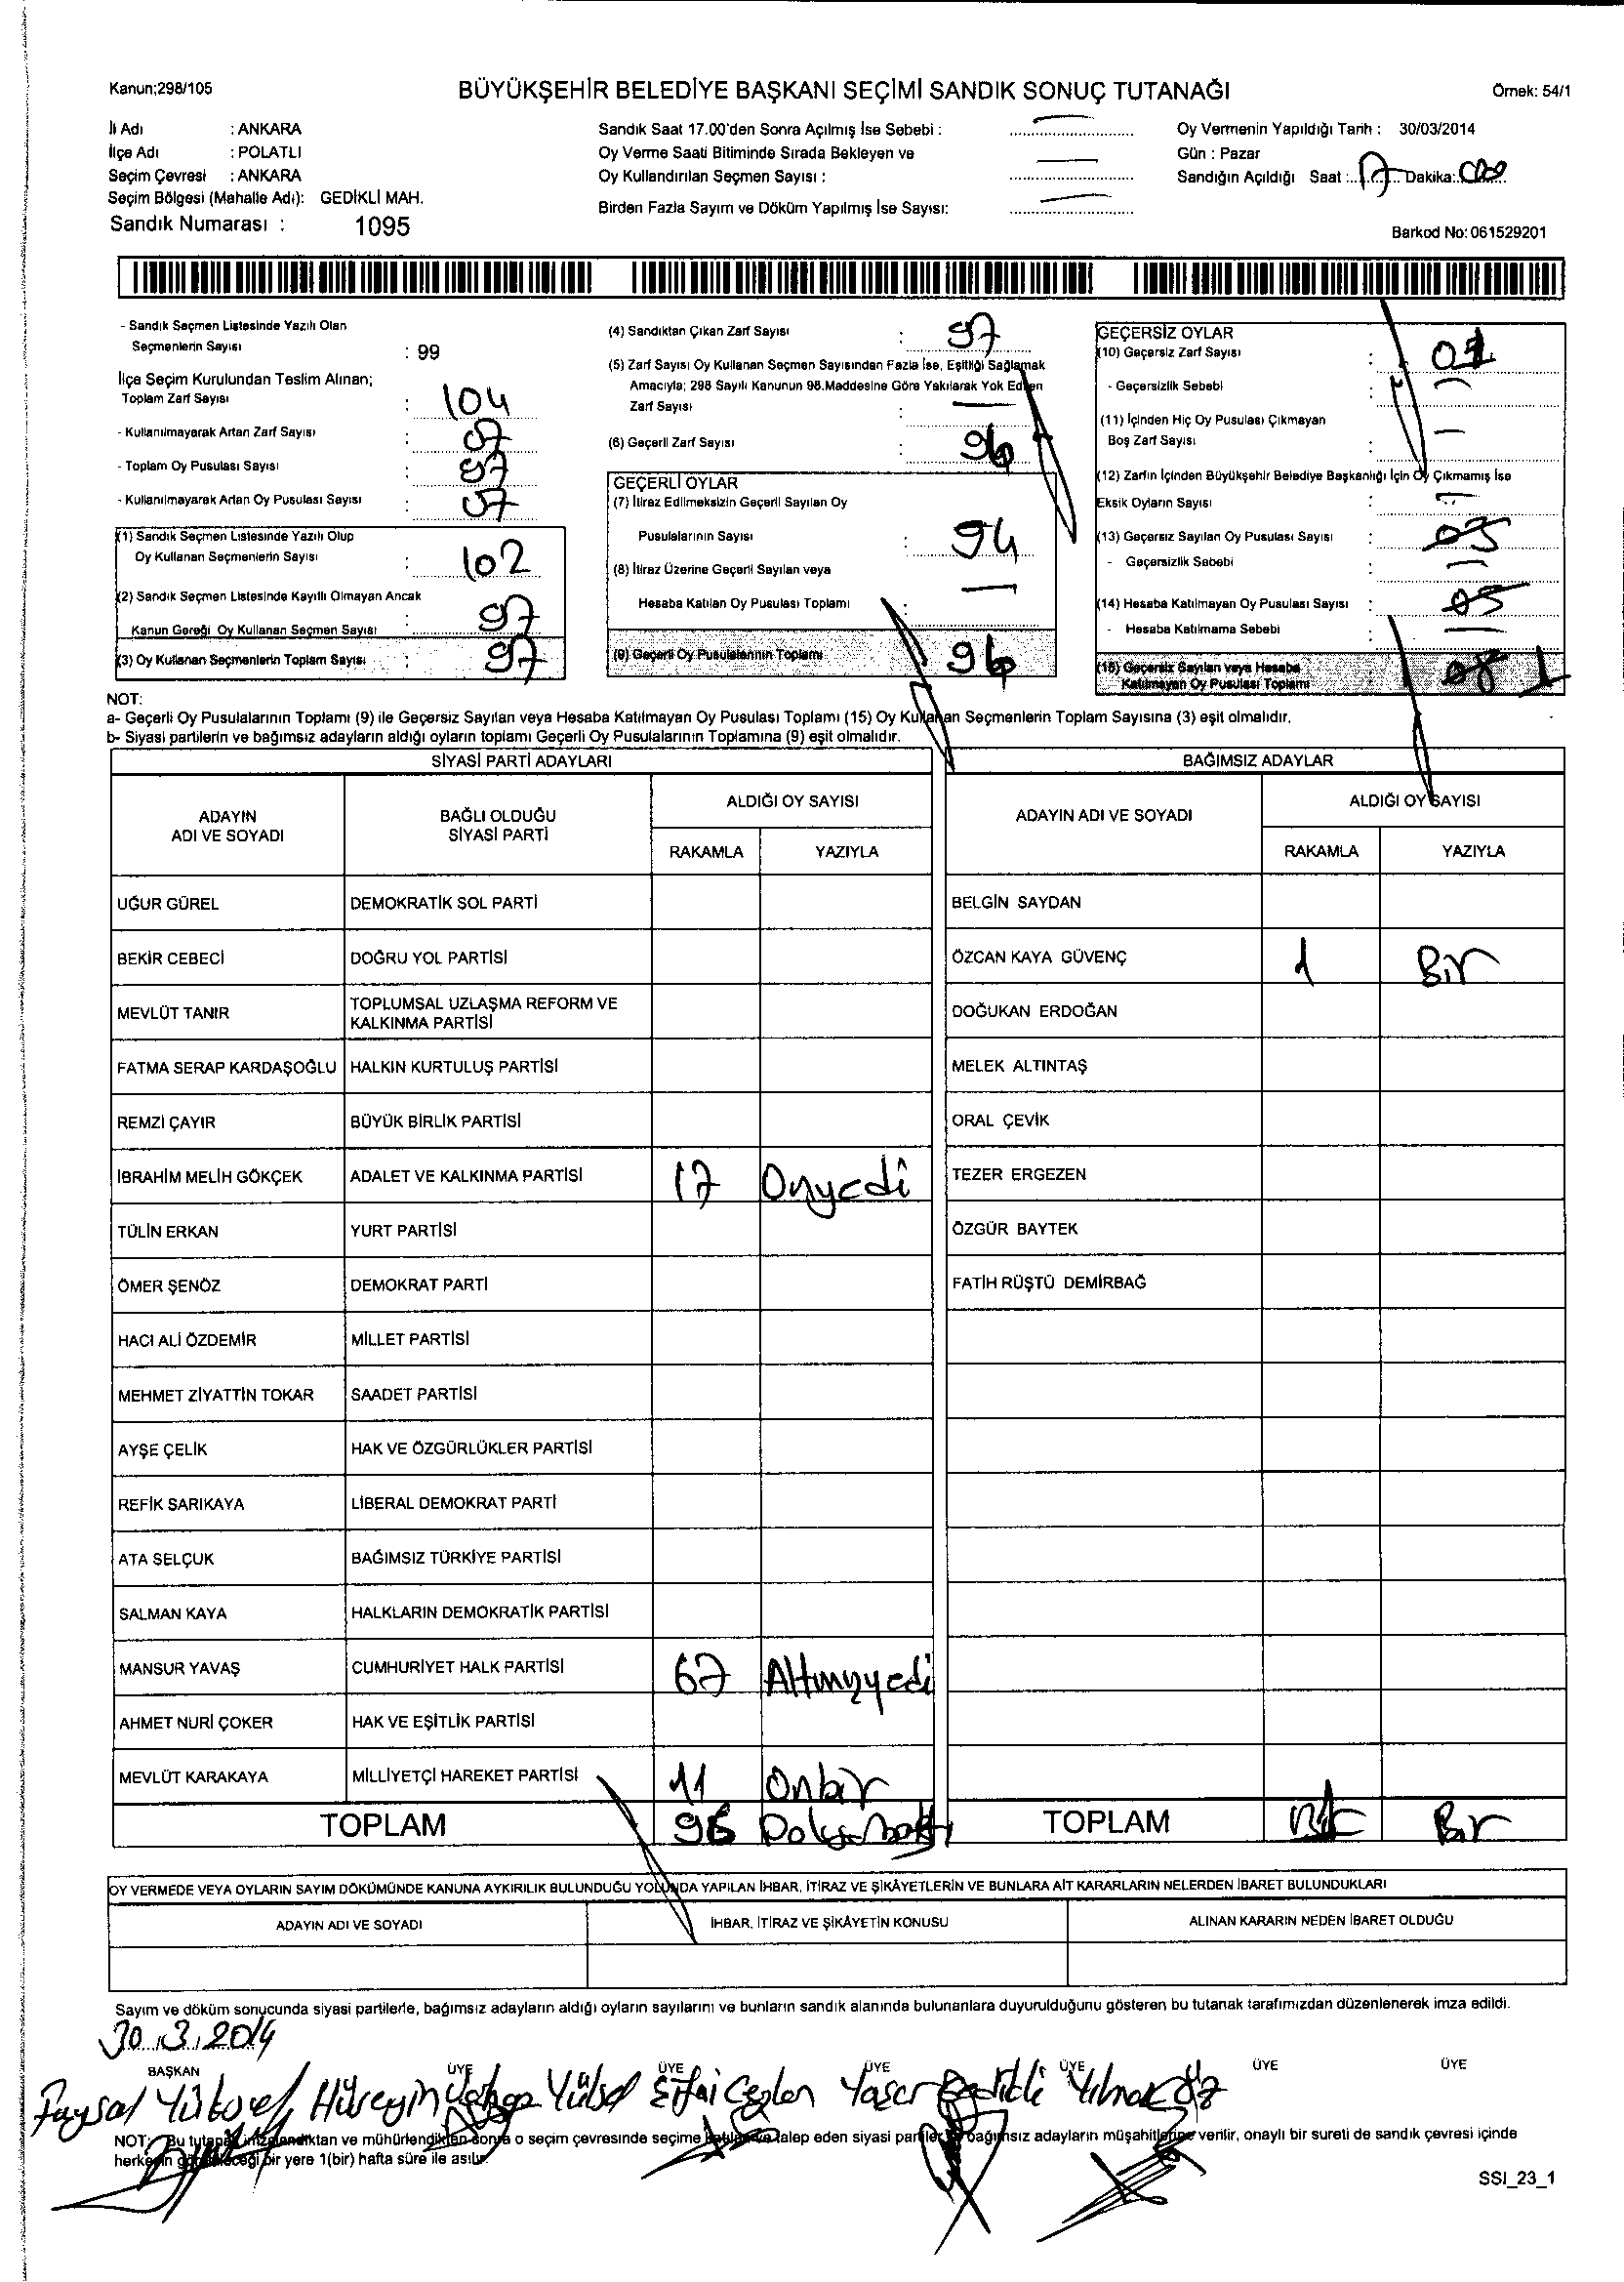 Kanun;298/105
BÜYÜKŞEHİR BELEDİYE BAŞKANI SEÇİMİ SANDIK SONUÇ TUTANAĞI
Örnek: 54/1
İli Adı : ANKARA
İlçe Adı : POLATLI
Seçim Çevresi : ANKARA
Seçim Bölgesi (Mahalle Adı): GEDİKLİ MAH.
Sandık Numarası : 1095
Sandık Saat 17.00'den Sonra Açılmış İse Sebebi :
Oy Verme Saati Bitiminde Sırada Bekleyen ve
Oy Kullandırılan Seçmen Sayısı :
Birden Fazla Sayım ve Döküm Yapılmış İse Sayısı:
Oy Vermenin Yapıldığı Tarih : 30/03/2014
Gün : Pazar
Sandığın Açıldığı Saat : 17 Dakika:
Barkod No: 061529201
- Sandık Seçmen Listesinde Yazılı Olan
Seçmenlerin Sayısı : 99
İlçe Seçim Kurulundan Teslim Alınan;
Toplam Zarf Sayısı : 104
- Kullanılmayarak Artan Zarf Sayısı : 07
- Toplam Oy Pusulası Sayısı : 97
- Kullanılmayarak Artan Oy Pusulası Sayısı : 07
(1) Sandık Seçmen Listesinde Yazılı Olup
Oy Kullanan Seçmenlerin Sayısı : 102
(2) Sandık Seçmen Listesinde Kayıtlı Olmayan Ancak
Kanun Gereği Oy Kullanan Seçmen Sayısı : 97
(3) Oy Kullanan Seçmenlerin Toplam Sayısı : 97
(4) Sandıktan Çıkan Zarf Sayısı : 97
(5) Zarf Sayısı Oy Kullanan Seçmen Sayısından Fazla İse, Eşitliği Sağlamak
Amacıyla; 298 Sayılı Kanunun 98.Maddesine Göre Yakılarak Yok Edilen
Zarf Sayısı : —
(6) Geçerli Zarf Sayısı : 96
GEÇERLİ OYLAR
(7) İtiraz Edilmeksizin Geçerli Sayılan Oy
Pusulalarının Sayısı : 94
(8) İtiraz Üzerine Geçerli Sayılan veya
Hesaba Katılan Oy Pusulası Toplamı : —
(9) Geçerli Oy Pusulalarının Toplamı 96
GEÇERSİZ OYLAR
(10) Geçersiz Zarf Sayısı : 01
- Geçersizlik Sebebi : —
(11) İçinden Hiç Oy Pusulası Çıkmayan
Boş Zarf Sayısı : —
(12) Zarfın İçinden Büyükşehir Belediye Başkanlığı İçin Oy Çıkmamış İse
Eksik Oyların Sayısı : —
(13) Geçersiz Sayılan Oy Pusulası Sayısı : 03
- Geçersizlik Sebebi : —
(14) Hesaba Katılmayan Oy Pusulası Sayısı : 05
- Hesaba Katılmama Sebebi : —
(15) Geçersiz Sayılan veya Hesaba
Katılmayan Oy Pusulası Toplamı 1
NOT:
a- Geçerli Oy Pusulalarının Toplamı (9) ile Geçersiz Sayılan veya Hesaba Katılmayan Oy Pusulası Toplamı (15) Oy Kullanan Seçmenlerin Toplam Sayısına (3) eşit olmalıdır.
b- Siyasi partilerin ve bağımsız adayların aldığı oyların toplamı Geçerli Oy Pusulalarının Toplamına (9) eşit olmalıdır.
SİYASİ PARTİ ADAYLARI
ADAYIN ADI VE SOYADI
BAĞLI OLDUĞU SİYASİ PARTİ
ALDIĞI OY SAYISI
RAKAMLA YAZIYLA
UĞUR GÜREL DEMOKRATİK SOL PARTİ
BEKİR CEBECİ DOĞRU YOL PARTİSİ
MEVLÜT TANIR TOPLUMSAL UZLAŞMA REFORM VE KALKINMA PARTİSİ
FATMA SERAP KARDAŞOĞLU HALKIN KURTULUŞ PARTİSİ
REMZİ ÇAYIR BÜYÜK BİRLİK PARTİSİ
İBRAHİM MELİH GÖKÇEK ADALET VE KALKINMA PARTİSİ 17 Onyedi
TÜLİN ERKAN YURT PARTİSİ
ÖMER ŞENÖZ DEMOKRAT PARTİ
HACI ALİ ÖZDEMİR MİLLET PARTİSİ
MEHMET ZİYATTİN TOKAR SAADET PARTİSİ
AYŞE ÇELİK HAK VE ÖZGÜRLÜKLER PARTİSİ
REFİK SARIKAYA LİBERAL DEMOKRAT PARTİ
ATA SELÇUK BAĞIMSIZ TÜRKİYE PARTİSİ
SALMAN KAYA HALKLARIN DEMOKRATİK PARTİSİ
MANSUR YAVAŞ CUMHURİYET HALK PARTİSİ 67 Altmışyedi
AHMET NURİ ÇOKER HAK VE EŞİTLİK PARTİSİ
MEVLÜT KARAKAYA MİLLİYETÇİ HAREKET PARTİSİ 11 Onbir
TOPLAM 96
BAĞIMSIZ ADAYLAR
ADAYIN ADI VE SOYADI
ALDIĞI OY SAYISI
RAKAMLA YAZIYLA
BELGİN SAYDAN
ÖZCAN KAYA GÜVENÇ 1 Bir
DOĞUKAN ERDOĞAN
MELEK ALTINTAŞ
ORAL ÇEVİK
TEZER ERGEZEN
ÖZGÜR BAYTEK
FATİH RÜŞTÜ DEMİRBAĞ
TOPLAM Bir
OY VERMEDE VEYA OYLARIN SAYIM DÖKÜMÜNDE KANUNA AYKIRILIK BULUNDUĞU YOLUNDA YAPILAN İHBAR, İTİRAZ VE ŞİKÂYETLERİN VE BUNLARA AİT KARARLARIN NELERDEN İBARET BULUNDUKLARI
ADAYIN ADI VE SOYADI
İHBAR, İTİRAZ VE ŞİKÂYETİN KONUSU
ALINAN KARARIN NEDEN İBARET OLDUĞU
Sayım ve döküm sonucunda siyasi partilerle, bağımsız adayların aldığı oyların sayılarını ve bunların sandık alanında bulunanlara duyurulduğunu gösteren bu tutanak tarafımızdan düzenlenerek imza edildi.
30.3.2014
BAŞKAN ÜYE ÜYE ÜYE ÜYE ÜYE ÜYE
Faysal Yüksel Hüseyin Yüksel Ceylan Yaşar Gedikli Yılmaz Öz
NOT: Bu tutanak imzalandıktan ve mühürlendikten sonra o seçim çevresinde seçime katılan ve talep eden siyasi partiler, bağımsız adayların müşahitlerine verilir, onaylı bir sureti de sandık çevresi içinde
herkesin görebileceği bir yere 1(bir) hafta süre ile asılır.
SSI_23_1